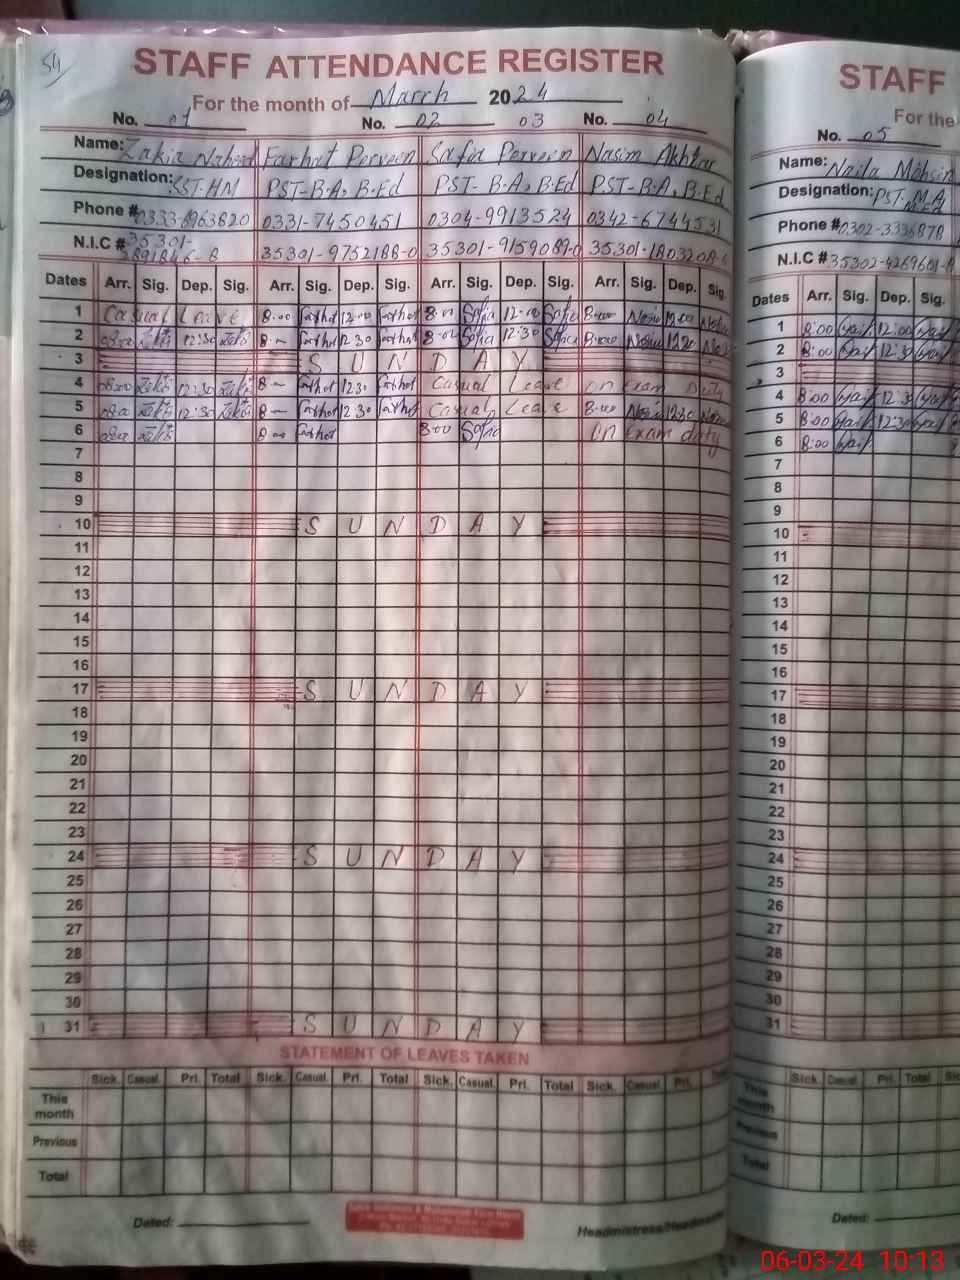 54
STAFF ATTENDANCE REGISTER
For the month of March 2024
No. 01 No. 02 03 No. 04
Name: Zakia Naheed Farhat Perveen Safia Perveen Nasim Akhtar
Designation: SST-HM PST-B.A, B.Ed PST-B.A, B.Ed PST-B.A, B.Ed
Phone # 0333-8963820 0331-7450451 0304-9913524 0342-6744531
N.I.C # 35301- 35301-9752188-0 35301-9159089-0 35301-1803208-6
Dates Arr. Sig. Dep. Sig. Arr. Sig. Dep. Sig. Arr. Sig. Dep. Sig. Arr. Sig. Dep. Sig.
1 Casual Leave 8:00 Farhat 12:00 Farhat 8:00 Safia 12:00 Safia 8:00 Nasim 12:00
2 0800 12:30 8 Farhat 12 30 Farhat 8:00 Safia 12:30 Safia 8:00 Nasim 12 30
3 SUNDAY
4 0800 12:30 8 Farhat 12 30 Farhat Casual Leave on Exam Duty
5 12:30 8 Farhat 12 30 Farhat Casual Leave 8:00 12:30
6 8 Farhat 8:00 Safia on Exam duty
7
8
9
10 SUNDAY
11
12
13
14
15
16
17 SUNDAY
18
19
20
21
22
23
24 SUNDAY
25
26
27
28
29
30
31 SUNDAY
STATEMENT OF LEAVES TAKEN
Sick. Casual. Pri. Total Sick. Casual. Pri. Total Sick. Casual. Pri. Total Sick. Casual. Pri.
This month
Previous
Total
Dated:
STAFF
For the
No. 05
Name: Naila Mohsin
Designation: PST. M.A
Phone # 0302-3336878
N.I.C # 35302-4269601-
Dates Arr. Sig. Dep.
1 8:00 12:00
2 8:00 12:3
3
4 8:00 12:3
5 8:00 12:3
6 8:00
7
8
9
10
11
12
13
14
15
16
17
18
19
20
21
22
23
24
25
26
27
28
29
30
31
Sick. Casual. Pri. Total
This month
Previous
Total
Dated:
06-03-24 10:13